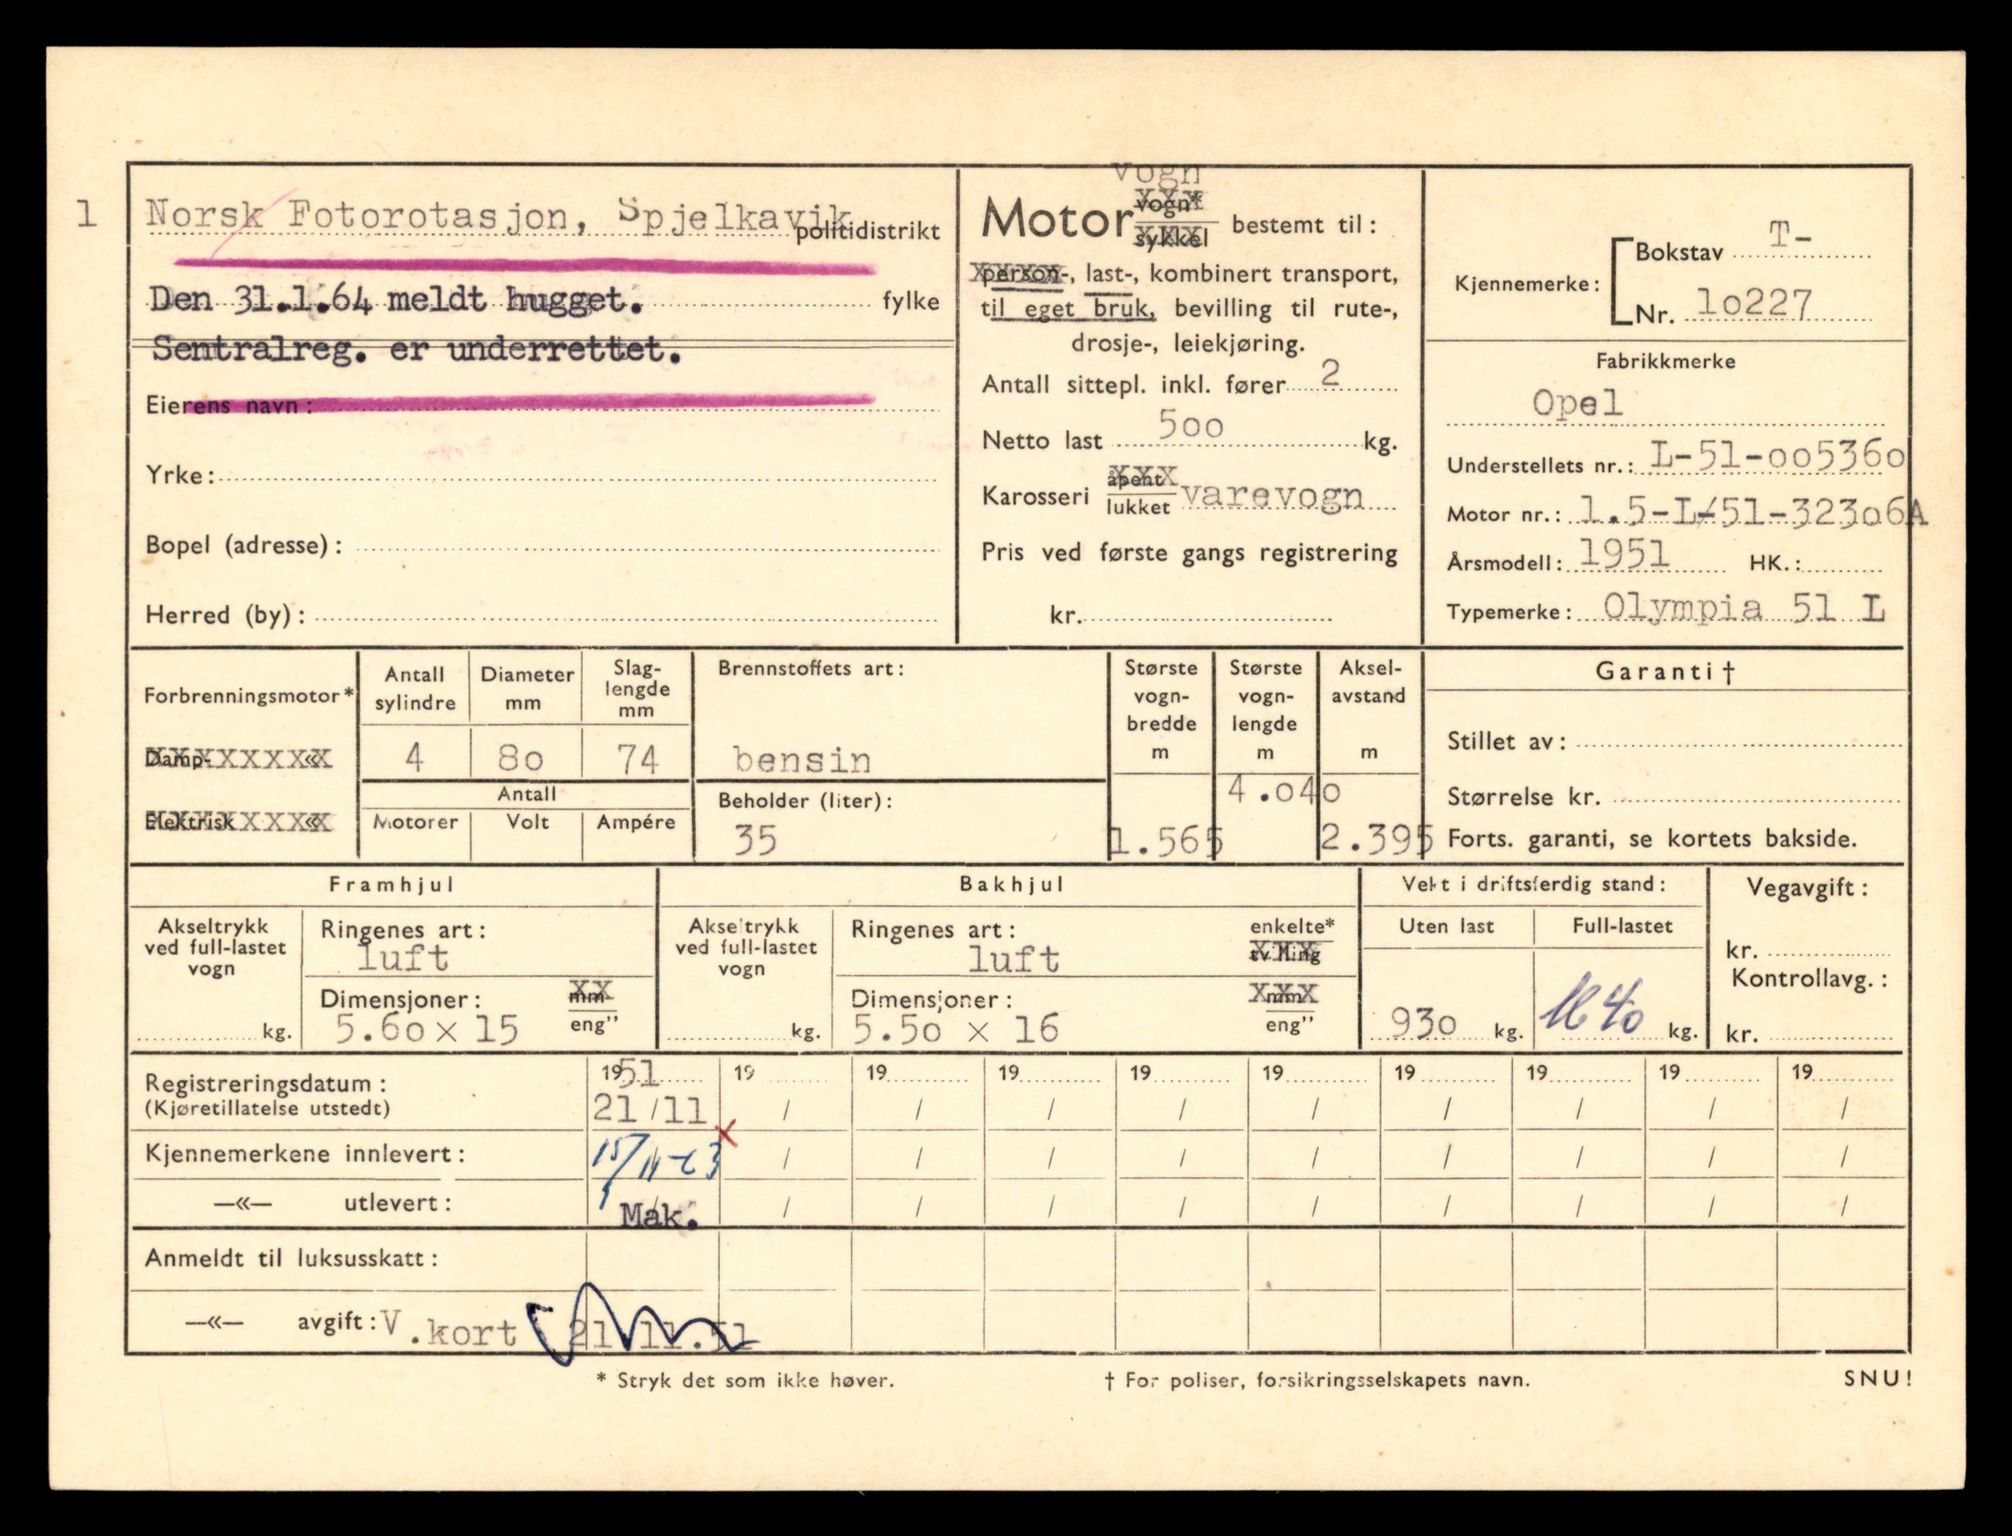 1 Norsk Fotorotasjon, Spjelkavik politidistrikt
Den 31.1.64 meldt hugget. fylke
Sentralreg. er underrettet.
Eierens navn:
Yrke:
Bopel (adresse):
Herred (by):
vogn
Motor vogn* bestemt til:
sykkel
person-, last-, kombinert transport,
til eget bruk, bevilling til rute-,
drosje-, leiekjøring.
Antall sittepl. inkl. fører 2
Netto last 5oo kg.
Karosseri åpent
lukket varevogn
Pris ved første gangs registrering
kr.
Kjennemerke: Bokstav T-
Nr. 1o227
Fabrikkmerke
Opel
Understellets nr.: L-51-oo536o
Motor nr.: 1.5-L/51-323o6A
Årsmodell: 1951 HK.:
Typemerke: Olympia 51 L
Forbrenningsmotor*
Damp- «
Elektrisk «
Antall sylindre
Diameter mm
Slag-lengde mm
4 8o 74
Antall
Motorer Volt Ampére
Brennstoffets art:
bensin
Beholder (liter):
35
Største vogn-bredde m
1.565
Største vogn-lengde m
4.o4o
Aksel-avstand m
2.395
Garanti †
Stillet av:
Størrelse kr.
Forts. garanti, se kortets bakside.
Framhjul
Akseltrykk ved full-lastet vogn
kg.
Ringenes art:
luft
Dimensjoner: mm
eng”
5.6o x 15
Bakhjul
Akseltrykk ved full-lastet vogn
kg.
Ringenes art: enkelte*
luft tvilling
Dimensjoner: mm
eng”
5.5o x 16
Vekt i driftsferdig stand:
Uten last Full-lastet
93o kg. 1640 kg.
Vegavgift:
kr.
Kontrollavg.:
kr.
Registreringsdatum: 1951 19 19 19 19 19 19 19 19 19
(Kjøretillatelse utstedt) 21/11 / / / / / / / / /
x
Kjennemerkene innlevert: 15/11-63 / / / / / / / / /
—«— utlevert: / / / / / / / / / /
Mak.
Anmeldt til luksusskatt:
—«— avgift: V.kort 21 11.51
* Stryk det som ikke høver. † For poliser, forsikringsselskapets navn. SNU!